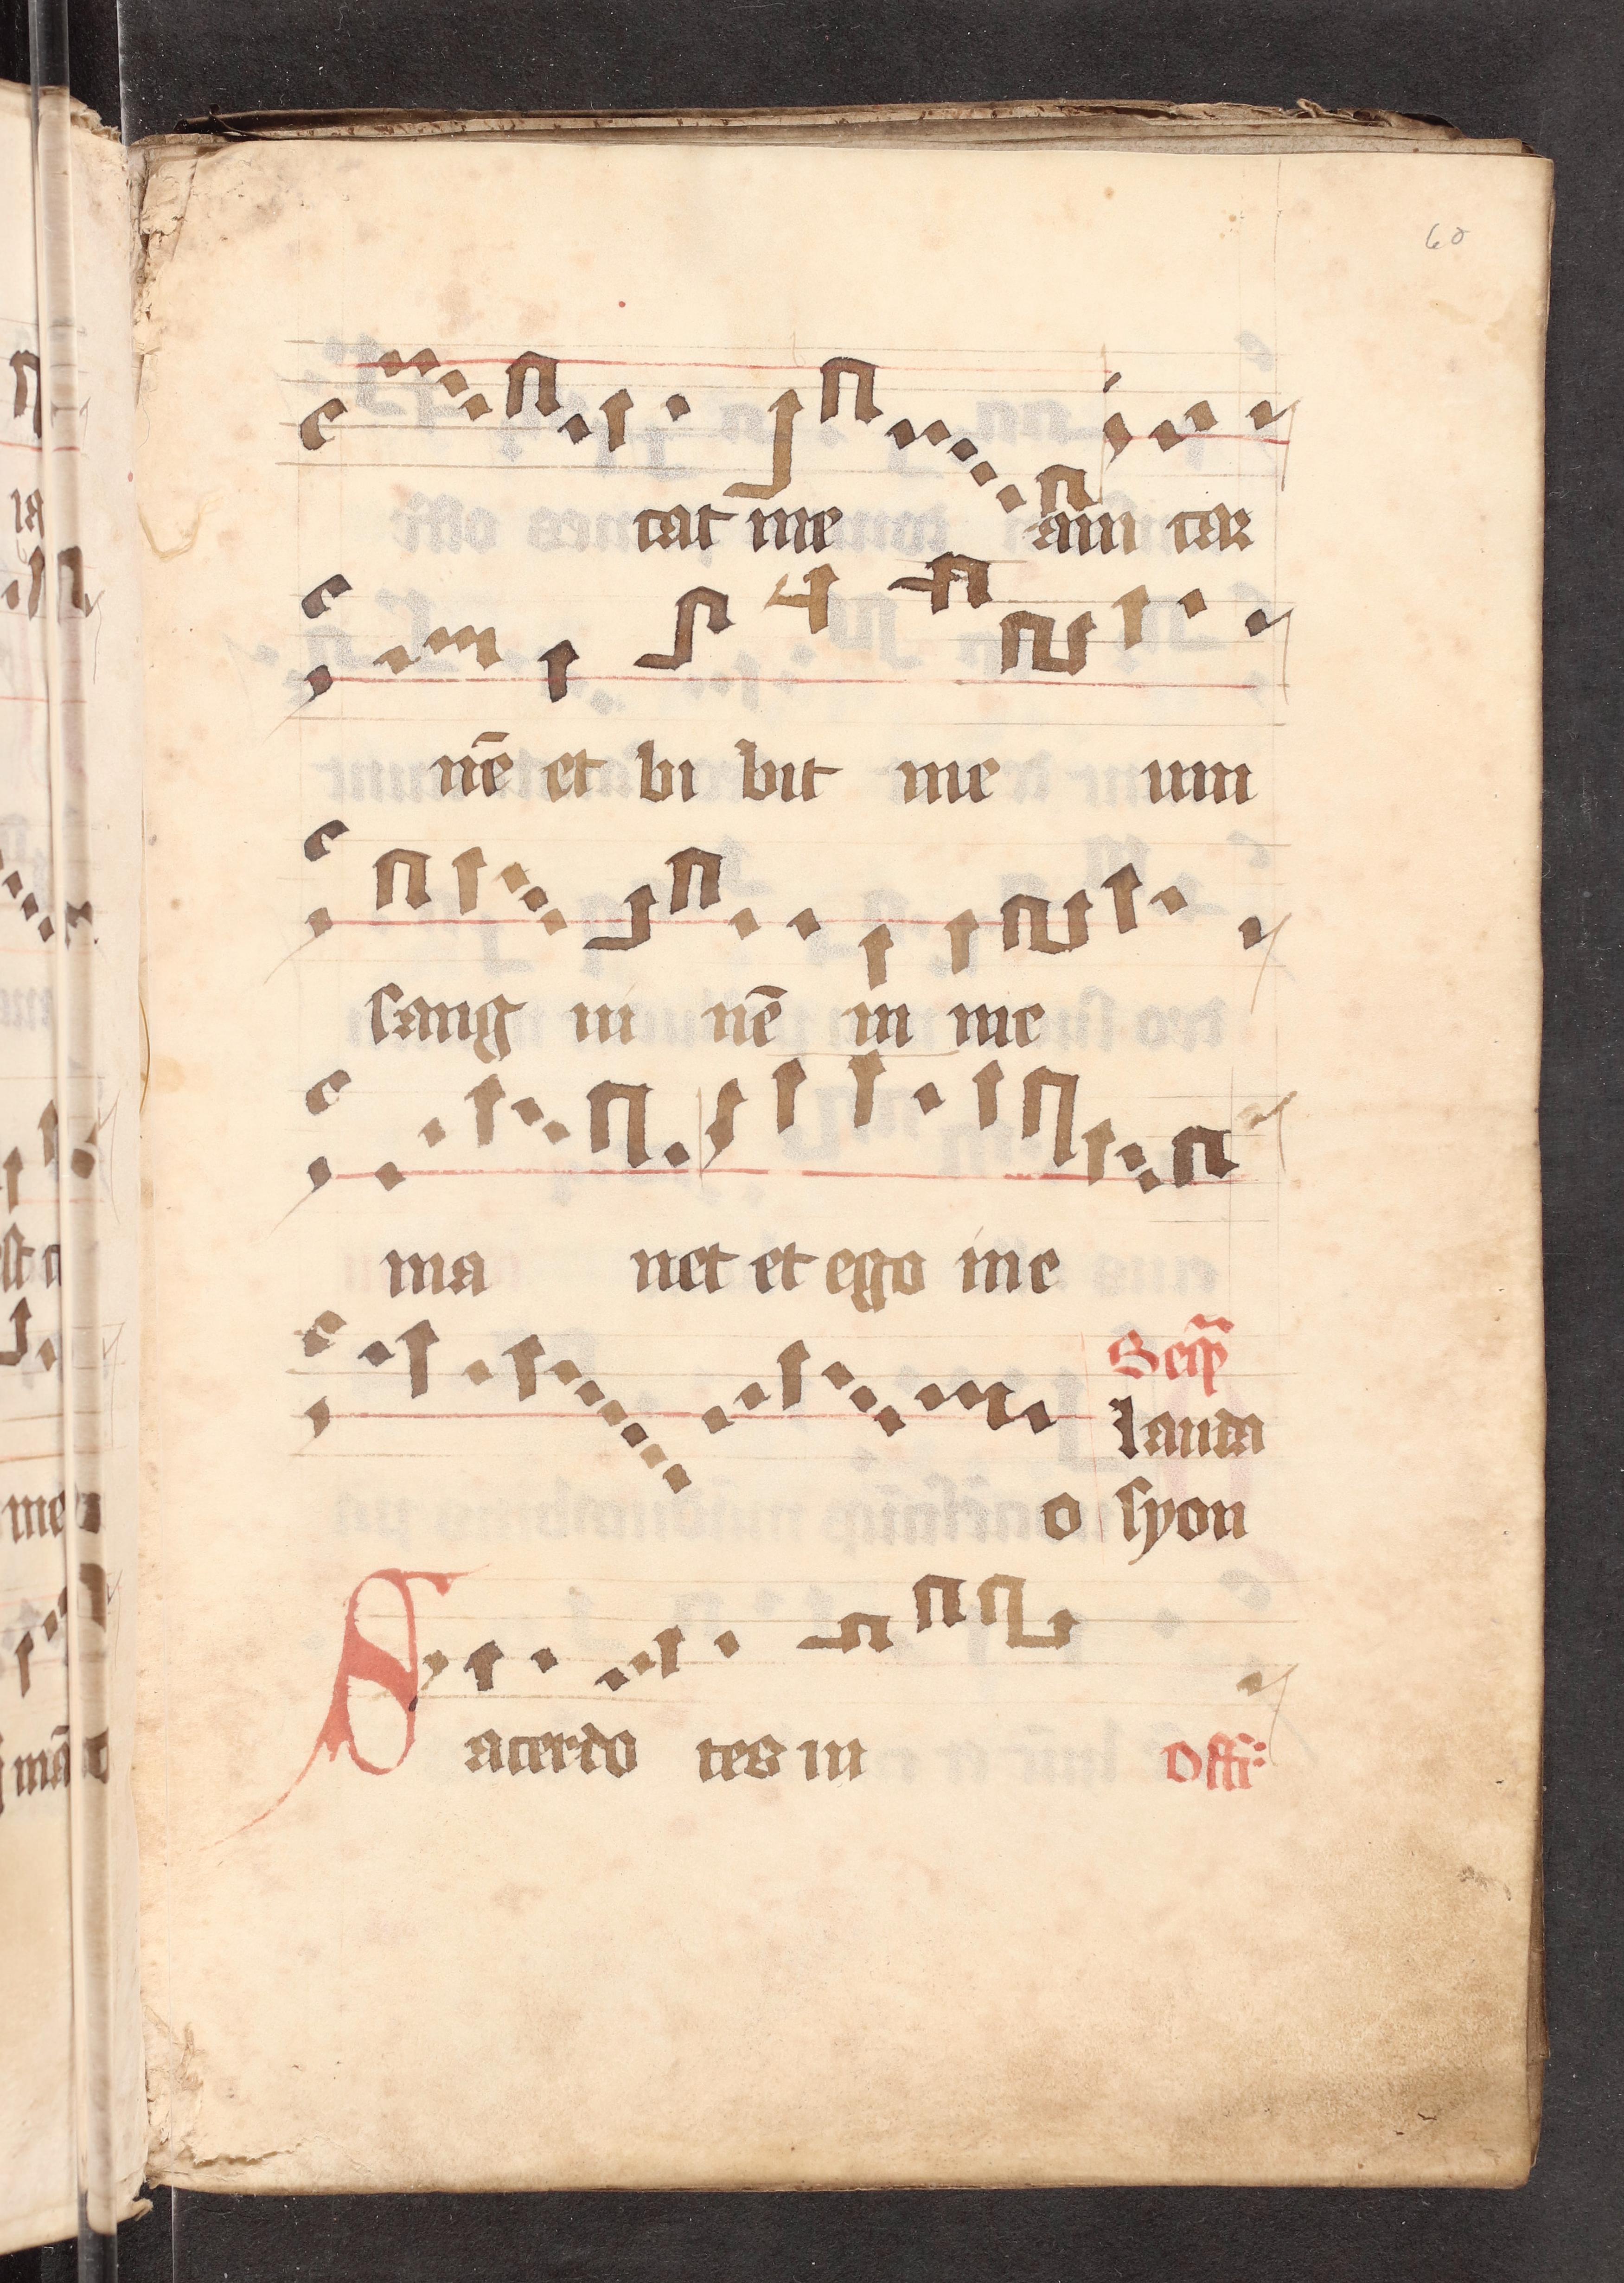 60
tat me am car
nē et bi bit me um
sang ui nē in me
ma net et ego in e
Seq̃
lauda
o syon
Sacerdo tes in Offi: